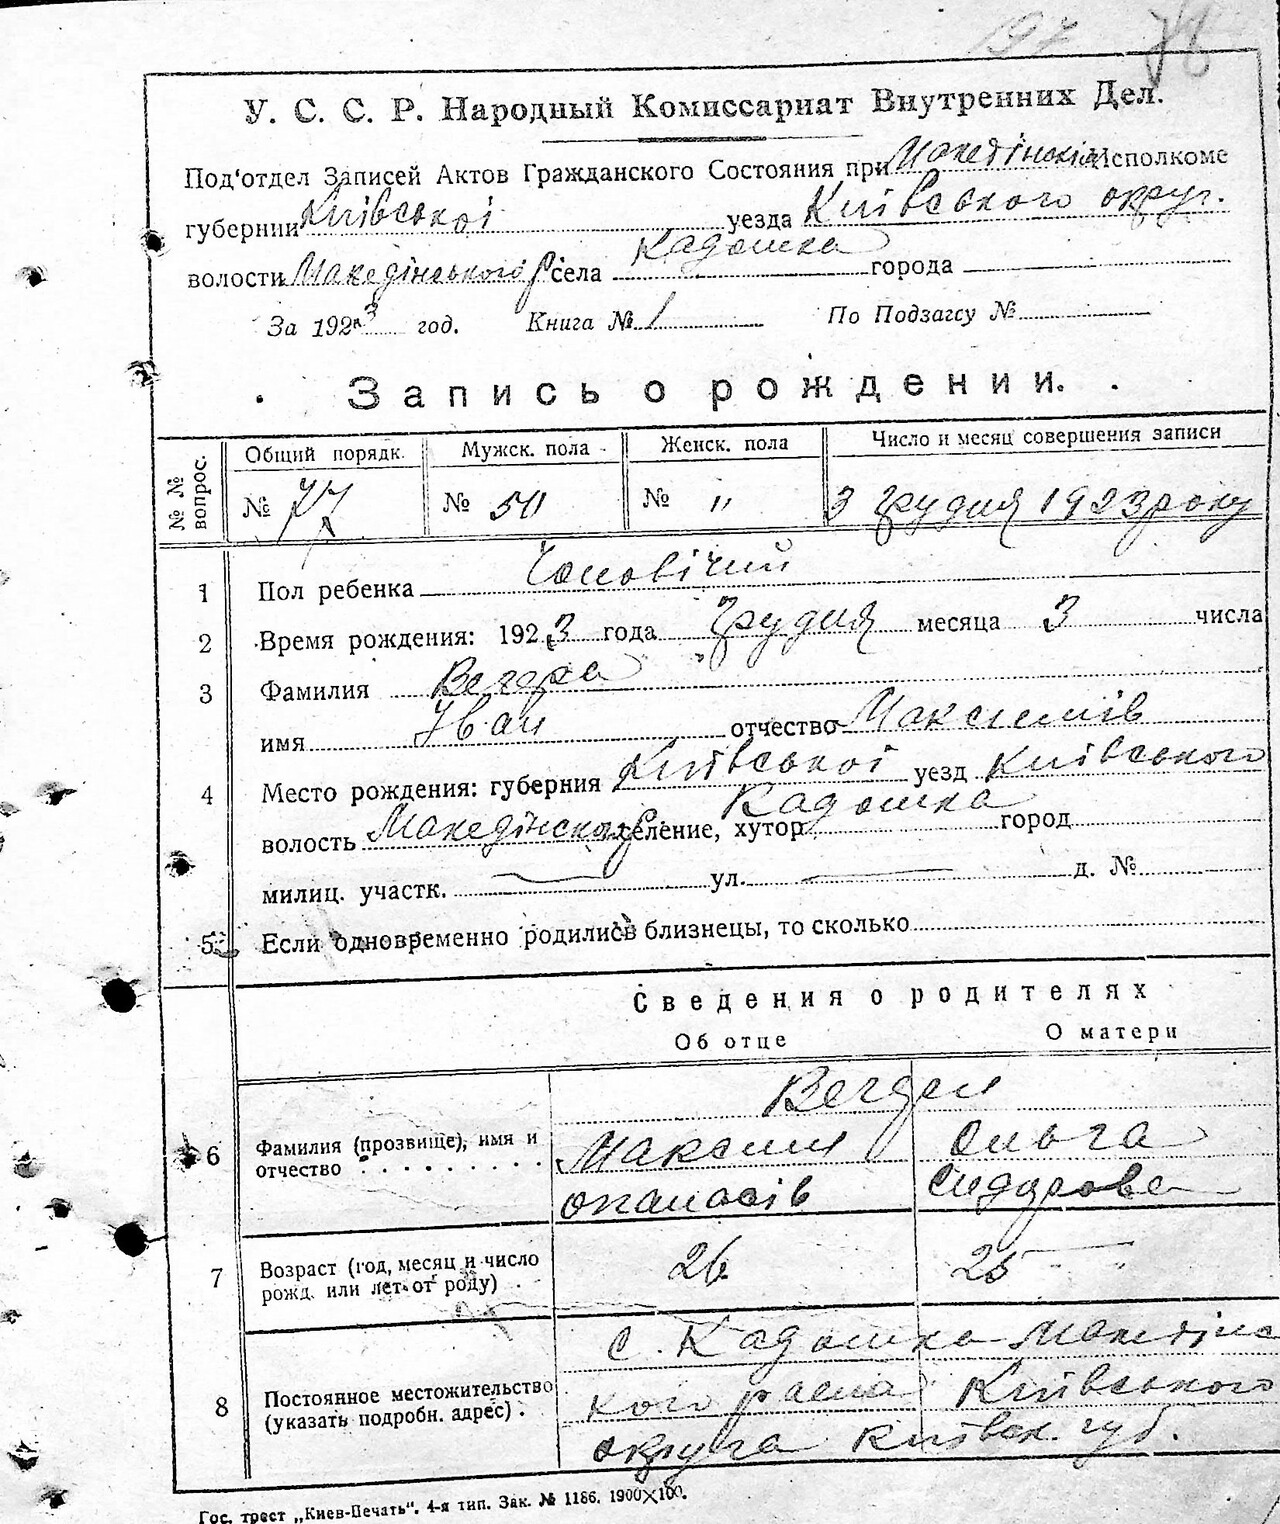 197 76
У. С. С. Р. Народный Комиссариат Внутренних Дел.
Под'отдел Записей Актов Гражданского Состояния при Македінскім Исполкоме
губернии Київської уезда Київського округ.
волости Македінського р села Кадомка города
За 1923 год. Книга № 1 По Подзагсу №
Запись о рождении.
№ № вопрос. Общий порядк. Мужск. пола Женск. пола Число и месяц совершения записи
№ 77 № 50 № " 3 Грудня 1923 року
1 Пол ребенка Чоловічий
2 Время рождения: 1923 года Грудня месяца 3 числа
3 Фамилия Вегера
имя Іван отчество Максимів
4 Место рождения: губерния Київської уезд Київського
волость Македінског р селение, хутор Кадомка город
милиц. участк. ул. д. №
5 Если одновременно родились близнецы, то сколько
Сведения о родителях
Об отце О матери
Вегери
6 Фамилия (прозвище), имя и отчество Максим Ольга
опанасів Сидорова
7 Возраст (год, месяц и число рожд. или лет от роду) 26 25
8 Постоянное местожительство (указать подробн. адрес). с. Кадомка Македінс
кого раена Київського
округа київск. губ.
Гос. трест „Киев-Печать". 4-я тип. Зак. № 1186. 1900X100.